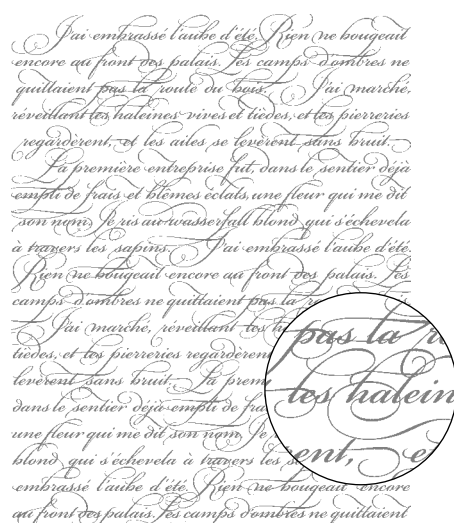 J'ai embrassé l'aube d'été. Rien ne bougeait
encore au front des palais. Les camps d'ombres ne
quittaient pas la route du bois. J'ai marché,
réveillant les haleines vives et tièdes, et les pierreries
regardèrent, et les ailes se levèrent sans bruit.
La première entreprise fut, dans le sentier déjà
empli de frais et blêmes éclats, une fleur qui me dit
son nom. Je ris au wasserfall blond qui s'échevela
à travers les sapins. J'ai embrassé l'aube d'été.
Rien ne bougeait encore au front des palais. Les
camps d'ombres ne quittaient pas la
J'ai marché, réveillant les
tièdes, et les pierreries regardèren
levèrent sans bruit. La prem
dans le sentier déjà empli de fra
une fleur qui me dit son nom. Je
blond qui s'échevela à travers les
embrassé l'aube d'été. Rien ne bougeait encore
au front des palais. Les camps d'ombres ne quittaient
pas la
les halein
ent, e